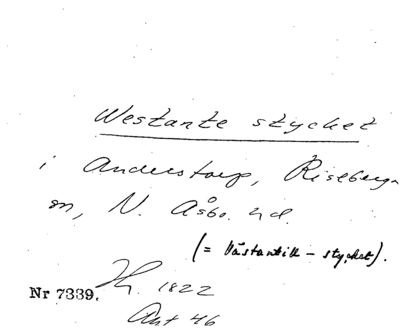 Westante stycket
i Anderstorp, Riseberga
sn, N. Åsbo hd.
(= Västantill - stycket).
Nr 7339. 1822
Ant 46